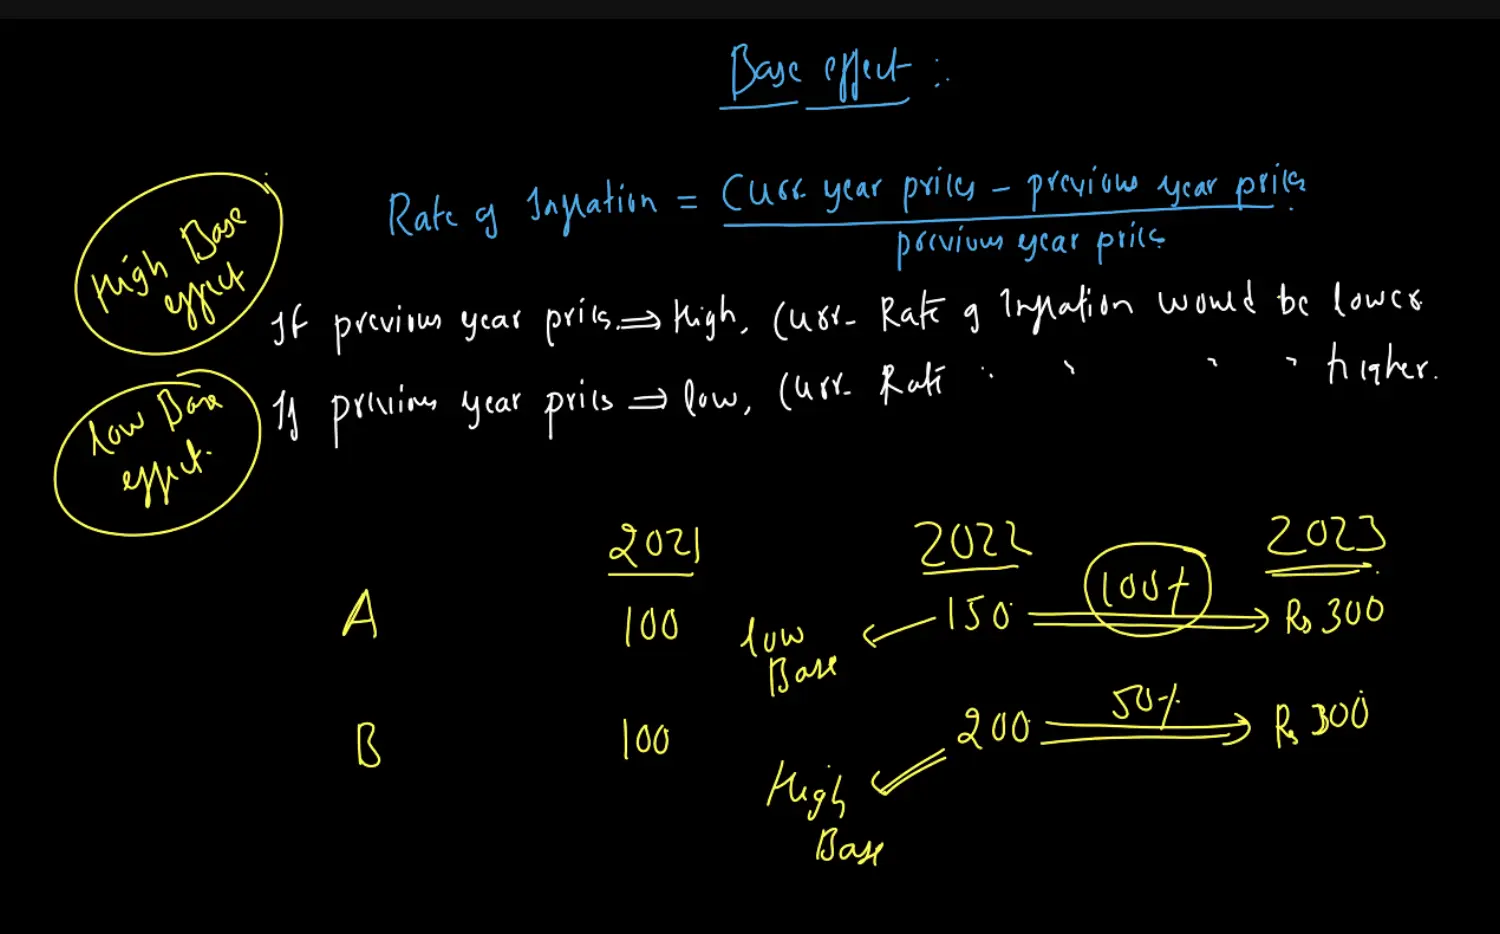 Base effect :
High Base
effect
Rate of Inflation = Curr year prices - previous year prices
previous year prices
If previous year prices ⇒ High, Curr- Rate of Inflation would be lower
Low Base
effect.
If previous year prices ⇒ low, Curr- Rate " " " " higher.
2021 2022 2023
A 100 low Base ← 150 100% Rs 300
B 100 200 50% Rs 300
High
Base